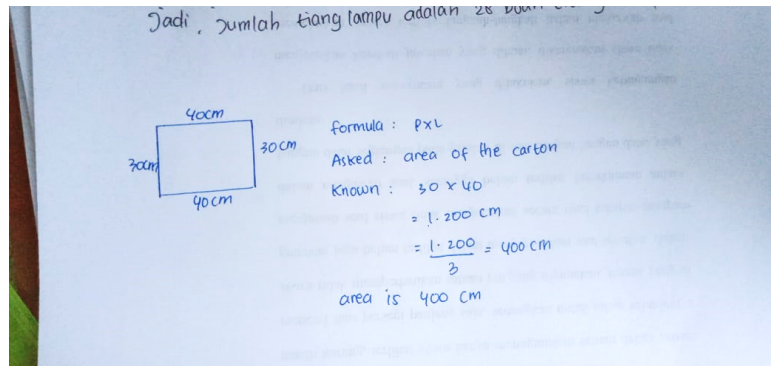 Jadi, Jumlah tiang lampu adalah 28
40cm
30cm
30 cm
40 cm
formula : P×L
Asked : area of the carton
Known : 30 × 40
= 1.200 cm
= 1.200 / 3 = 400 cm
area is 400 cm